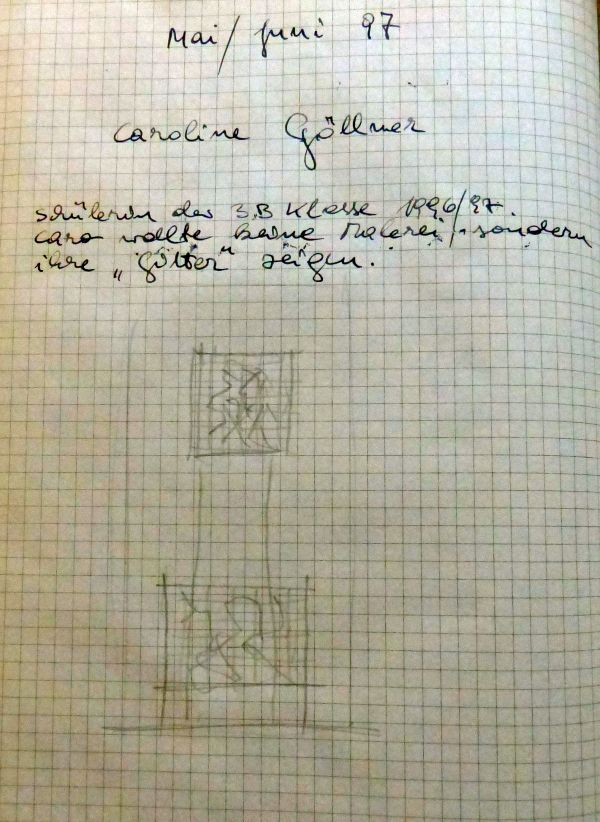 Mai/Juni 97
Caroline Göllner
Schülerin der 3.B Klasse 1996/97.
Caro wollte keine Malerei, sondern
ihre „Götter" zeigen.